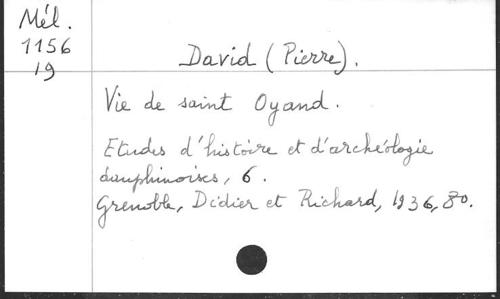 Mél.
1156
19
David (Pierre).
Vie de saint Oyand.
Etudes d'histoire et d'archéologie
dauphinoises, 6.
Grenoble, Didier et Richard, 1936, 8o.